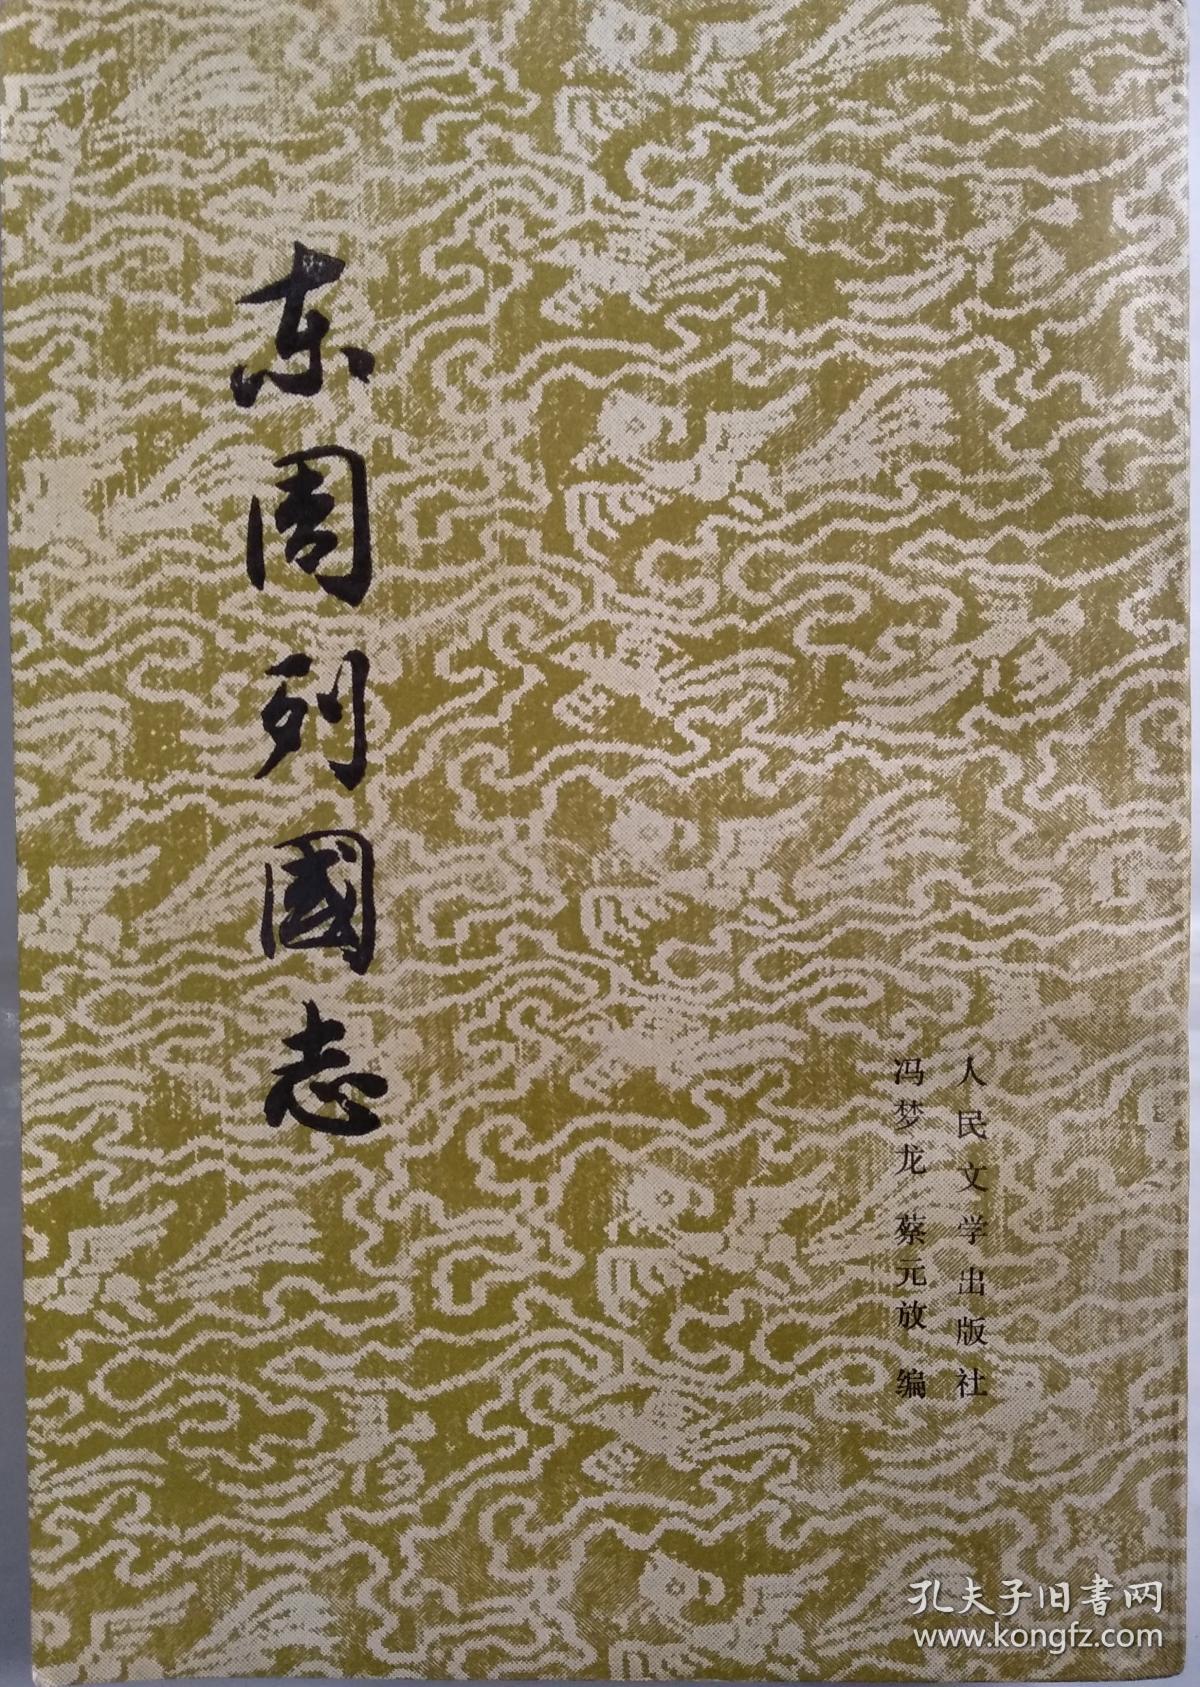 东周列國志
人民文学出版社
冯梦龙 蔡元放 编
孔夫子旧書网
www.kongfz.com